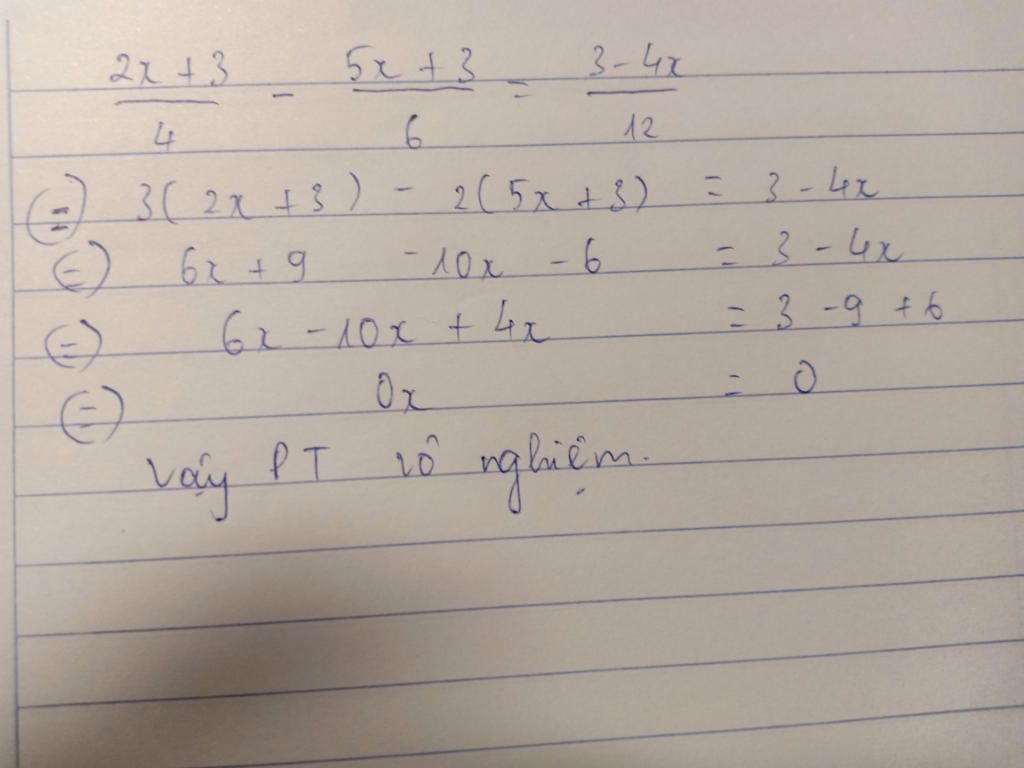 (2x + 3)/4 - (5x + 3)/6 = (3 - 4x)/12
(=) 3(2x + 3) - 2(5x + 3) = 3 - 4x
(=) 6x + 9 - 10x - 6 = 3 - 4x
(=) 6x - 10x + 4x = 3 - 9 + 6
(=) 0x = 0
Vậy PT vô nghiệm.